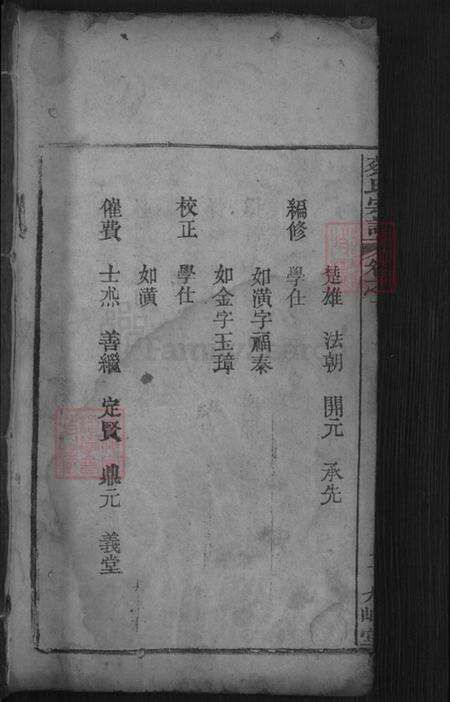 楚雄 法朝 開元 承先
編修 學仕
如潢字福泰
如金字玉璋
校正 學仕
如潢
催費 士杰 善繼 定賢 鼎元 義堂